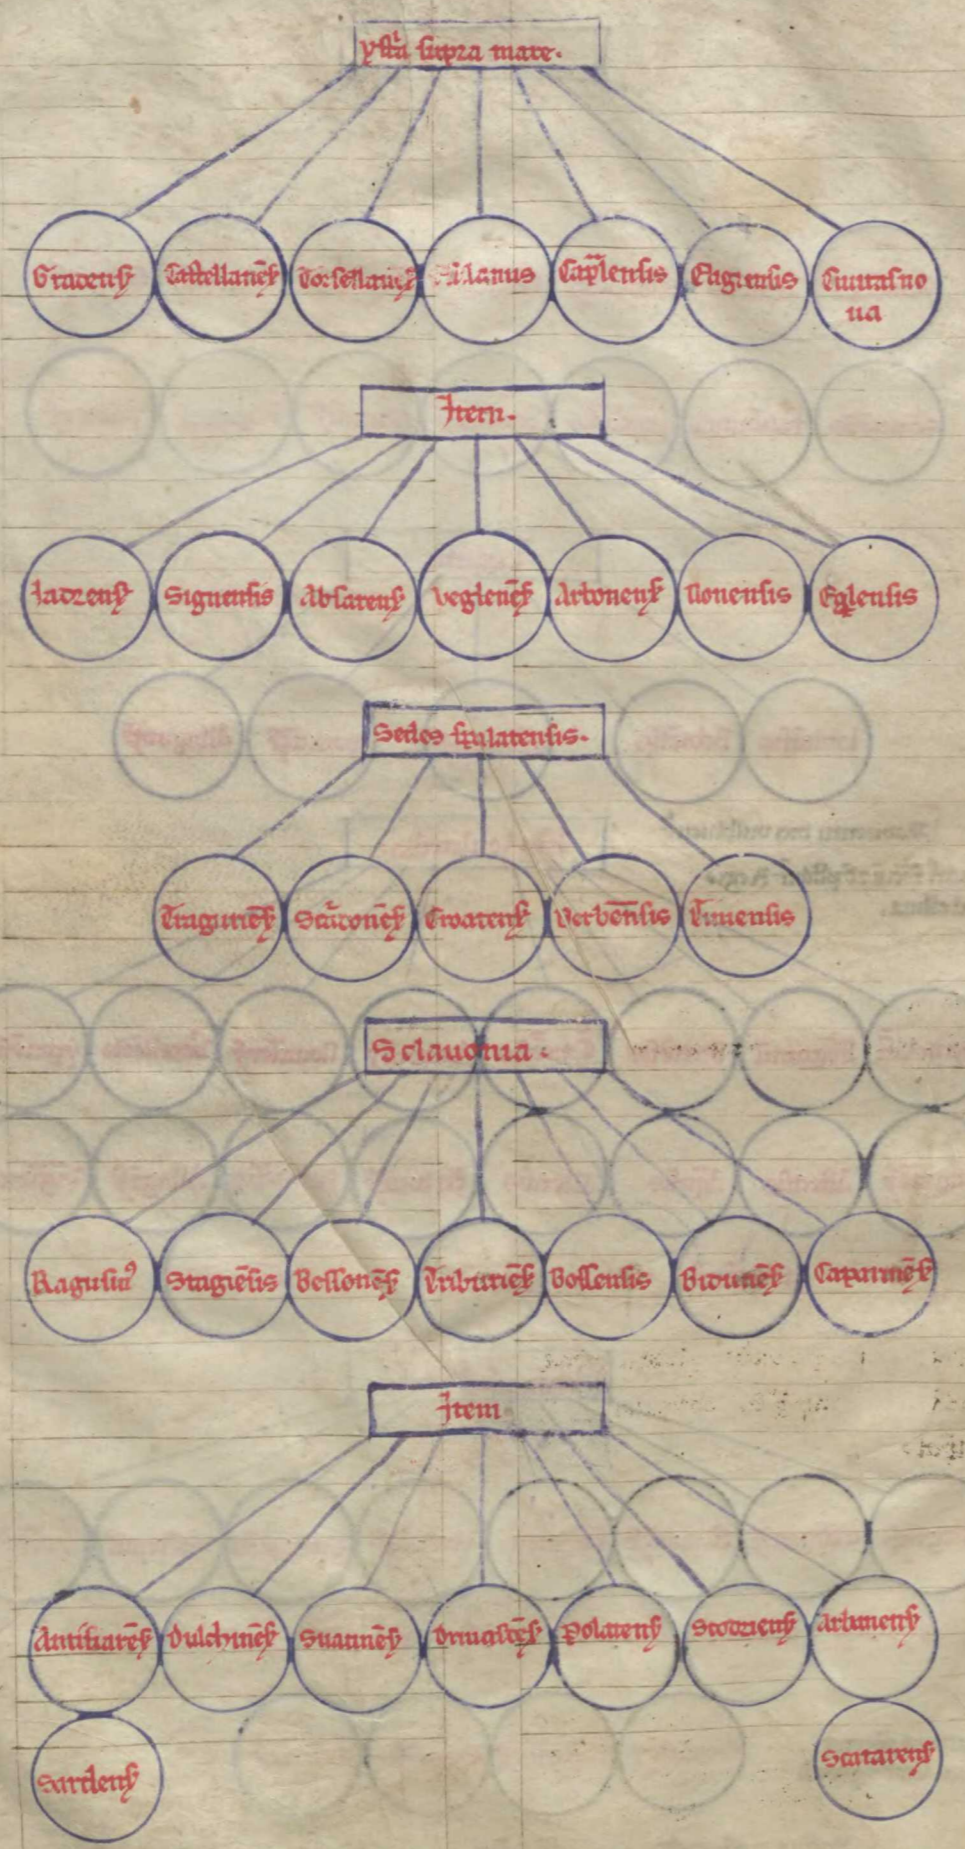 ystria supra mare.
Gradensis
Castellanēsis
Torsellanus
Caprlensis
Eugiensis
Ciuitasno
ua
Item.
Iadrensis
Signensis
Absarensis
Veglenēsis
Arbonensis
Nonensis
Eqlensis
Sedes spalatensis.
Traguriēsis
Scardonēsis
Croatensis
Verbēnsis
Tinensis
Sclauonia.
Ragusius
Stagnēsis
Bessonēsis
Triburiēsis
Bossensis
Biduanēsis
Cataranēsis
Item
Antibarēsis
Dulchinēsis
Suacinēsis
Driuastēsis
Polatensis
Scodriensis
Arbanensis
Sardensis
Scutarensis